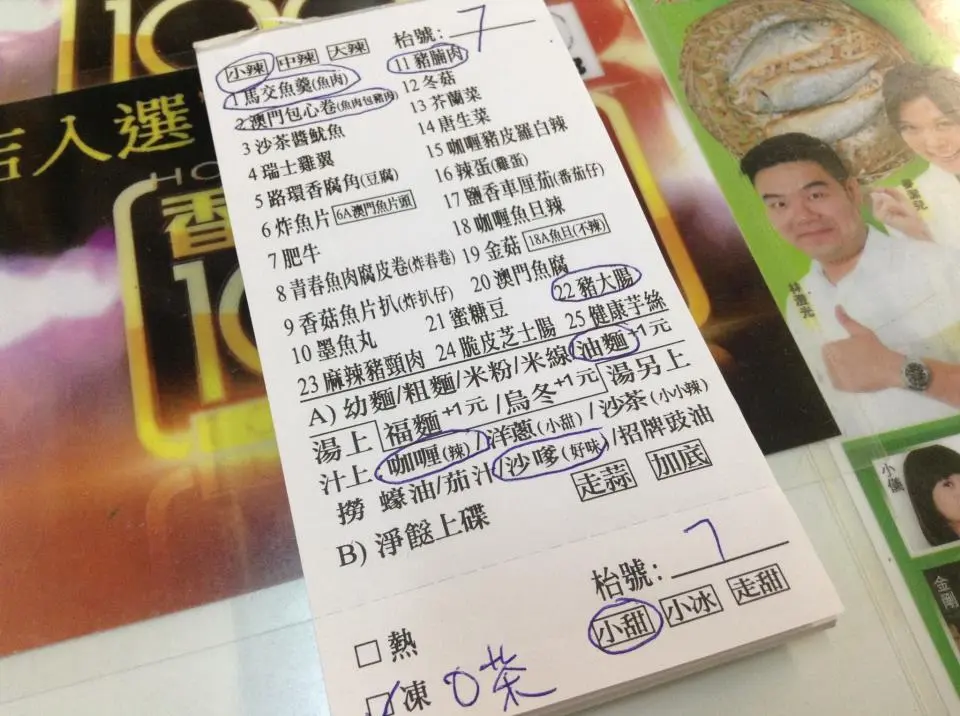 小辣 中辣 大辣 枱號: 7
1 馬交魚羹(魚肉) 11 豬腩肉
2 澳門包心卷(魚肉包豬肉) 12 冬菇
3 沙茶醬魷魚 13 芥蘭菜
4 瑞士雞翼 14 唐生菜
5 路環香腐角(豆腐) 15 咖喱豬皮羅白辣
6 炸魚片 6A澳門魚片頭 16 辣蛋(雞蛋)
7 肥牛 17 鹽香車厘茄(番茄仔)
8 青春魚肉腐皮卷(炸春卷) 18 咖喱魚旦辣
9 香菇魚片扒(炸扒仔) 19 金菇 18A魚旦(不辣)
10 墨魚丸 20 澳門魚腐
21 蜜糖豆 22 豬大腸
23 麻辣豬頸肉 24 脆皮芝士腸 25 健康芋絲
A) 幼麵/粗麵/米粉/米線 油麵+1元
湯上 福麵+1元/烏冬+1元 湯另上
汁上 咖喱(辣)/洋蔥(小甜)/沙茶(小小辣)
撈 蠔油/茄汁/沙嗲(好味)/招牌豉油
B) 淨餸上碟 走蒜 加底
枱號: 7
小甜 小冰 走甜
熱
凍 0茶
店入選
香
100
林澄光
小儀
金剛